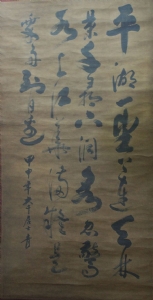 平湖一望上連天林
景千尋下洞泉忽驚
水上光華滿疑是
乘舟到日邊 甲申年